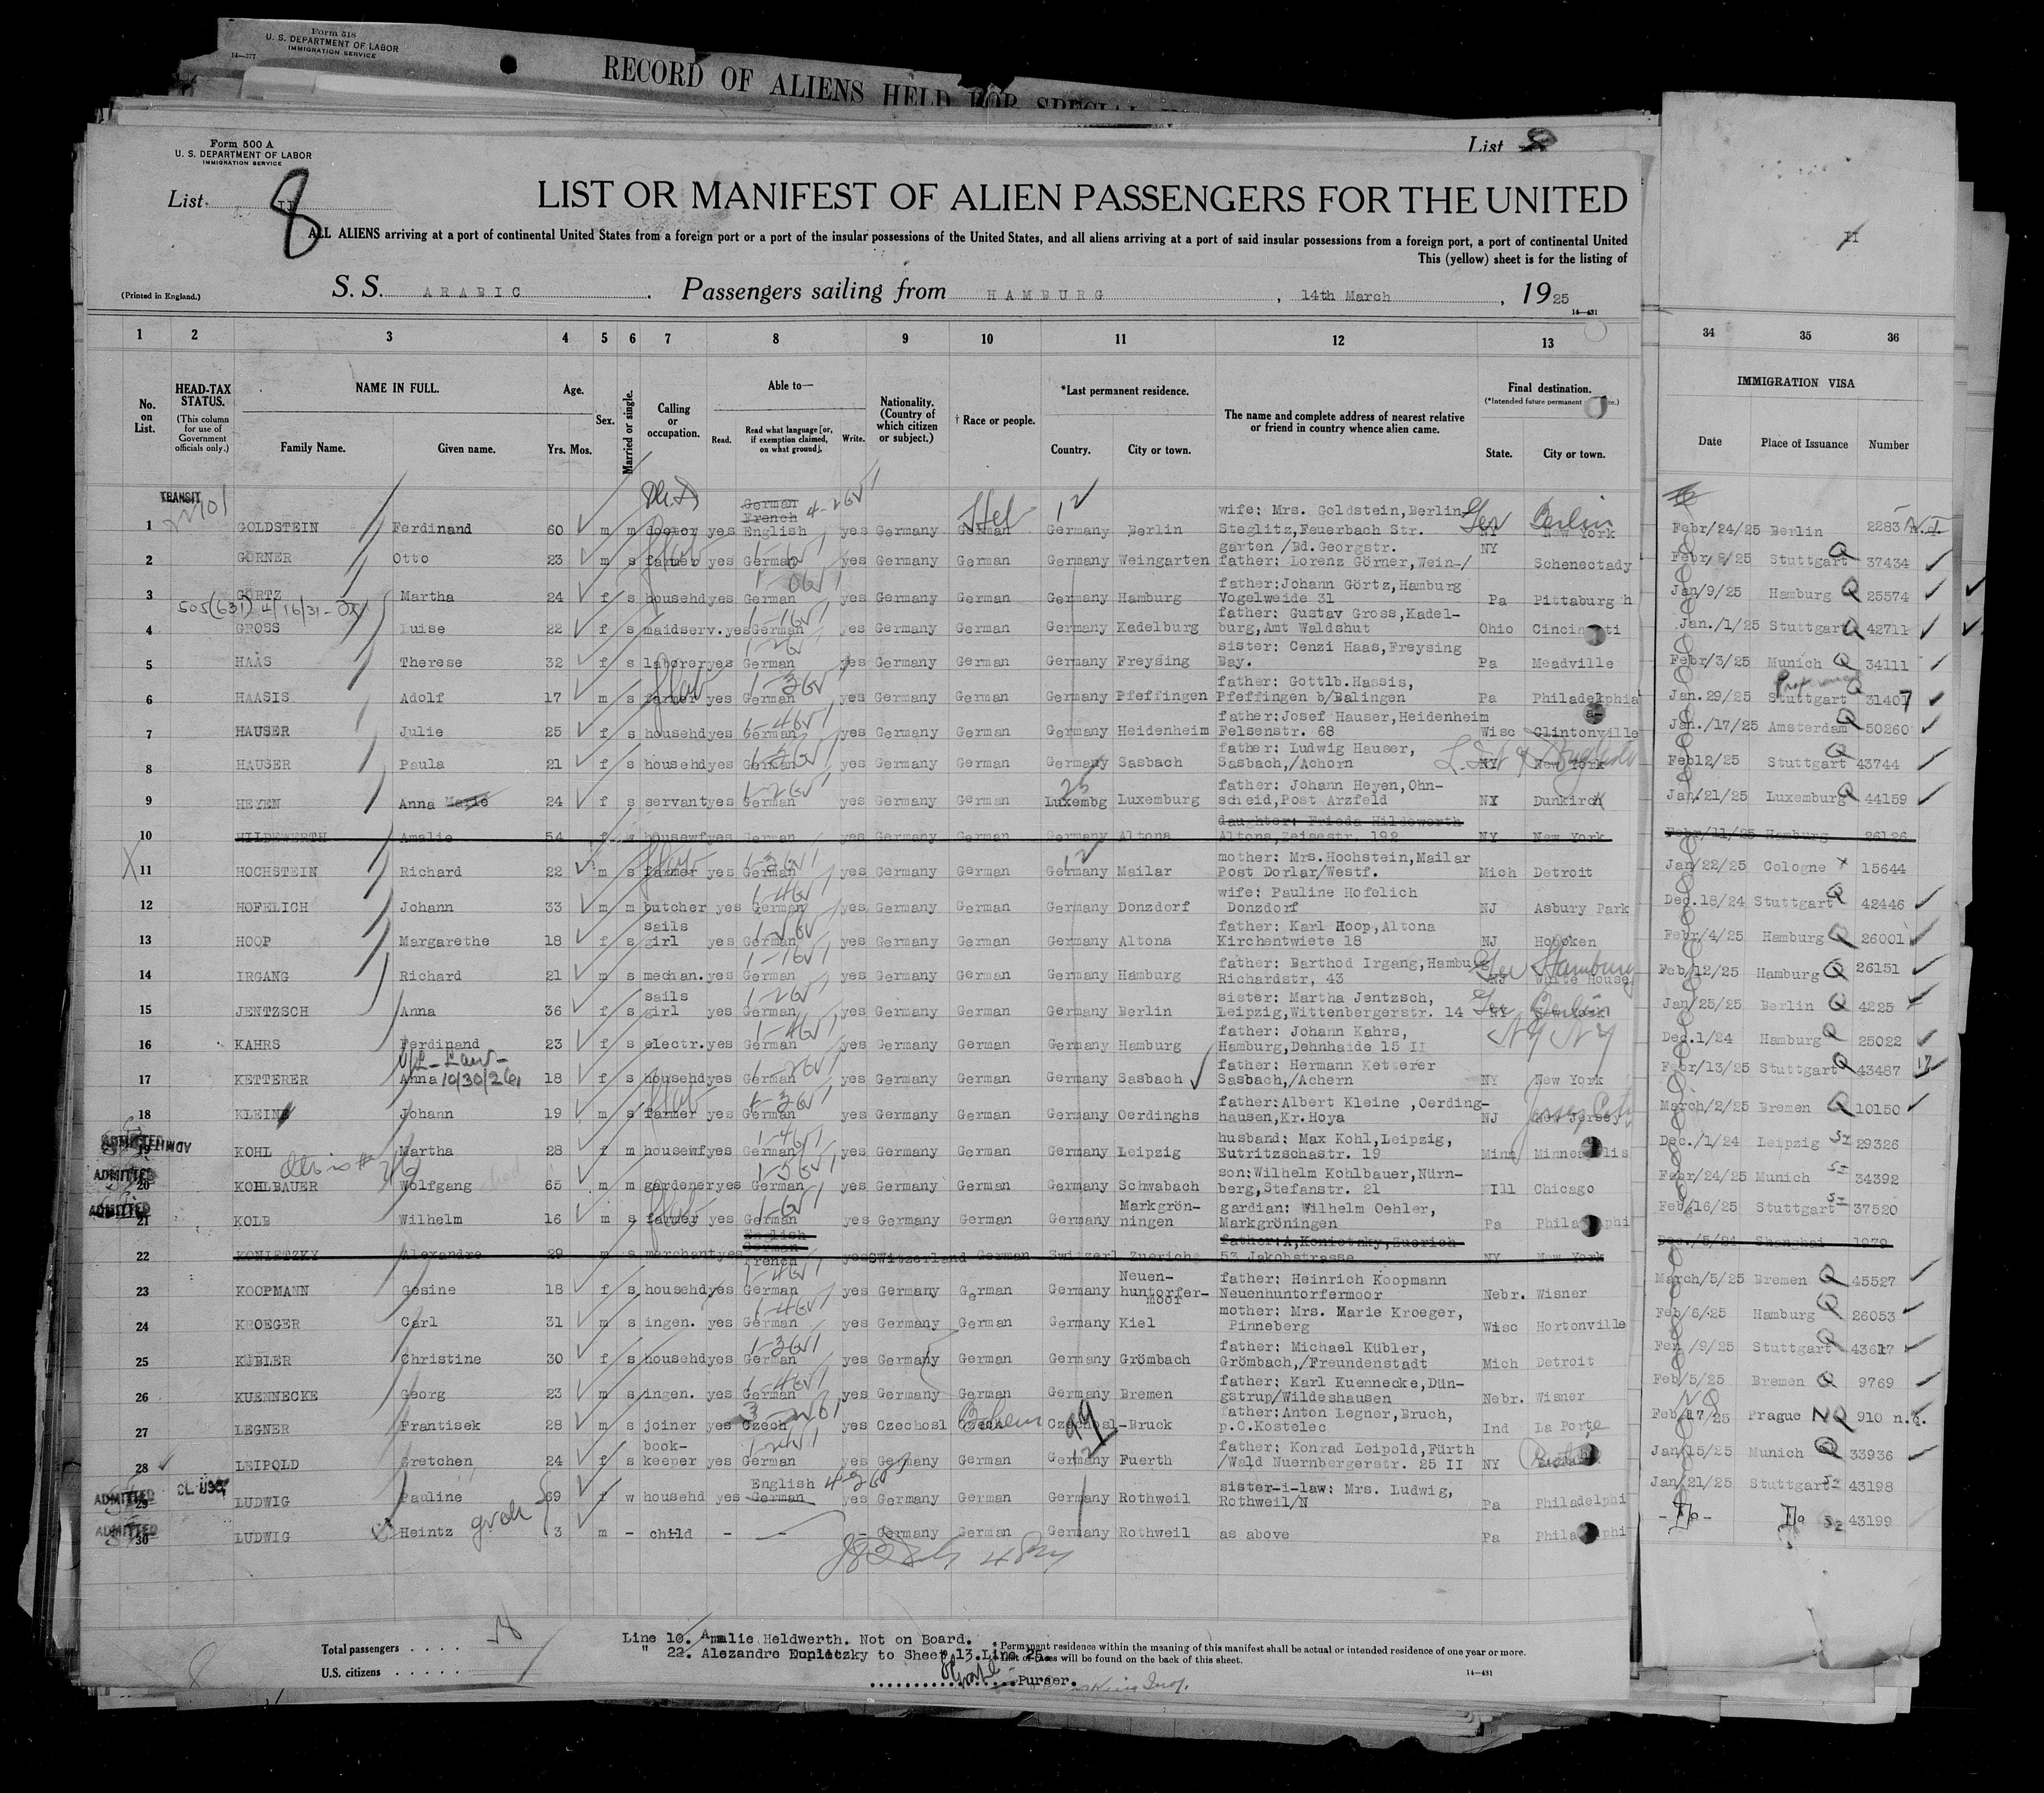 Form 518
U. S. DEPARTMENT OF LABOR
IMMIGRATION SERVICE
14—377
RECORD OF ALIENS HELD FOR SPECIAL
Form 500 A
U. S. DEPARTMENT OF LABOR
IMMIGRATION SERVICE
List
List II 8
LIST OR MANIFEST OF ALIEN PASSENGERS FOR THE UNITED
ALL ALIENS arriving at a port of continental United States from a foreign port or a port of the insular possessions of the United States, and all aliens arriving at a port of said insular possessions from a foreign port, a port of continental United
This (yellow) sheet is for the listing of
(Printed in England.)
S. S. ARABIC. Passengers sailing from HAMBURG, 14th March, 1925
14—431
1 2 3 4 5 6 7 8 9 10 11 12 13 34 35 36
No. on List.
HEAD-TAX STATUS.
(This column for use of Government officials only.)
NAME IN FULL.
Family Name. Given name.
Age.
Yrs. Mos.
Sex.
Married or single.
Calling or occupation.
Able to—
Read. Read what language [or, if exemption claimed, on what ground]. Write.
Nationality. (Country of which citizen or subject.)
† Race or people.
*Last permanent residence.
Country. City or town.
The name and complete address of nearest relative or friend in country whence alien came.
Final destination.
(*Intended future permanent
State. City or town.
IMMIGRATION VISA
Date Place of Issuance Number
TRANSIT
German
French 4-26V1
wife: Mrs. Goldstein, Berlin
1 GOLDSTEIN Ferdinand 60 m m doctor yes English yes Germany German Hef Germany 12 Berlin Steglitz,Feuerbach Str. NY New York Ger Berlin Febr/24/25 Berlin 2283 N.I.
garten /Bd.Georgstr. NY
2 GÖRNER Otto 23 m s farmer yes German yes Germany German Germany Weingarten father: Lorenz Görner,Wein-/ Schenectady Febr/8/25 Stuttgart Q 37434
father:Johann Görtz,Hamburg
3 GÖRTZ Martha 24 f s househd yes German yes Germany German Germany Hamburg Vogelweide 31 Pa Pittaburg h Jan/9/25 Hamburg Q 25574
505(631) 4/16/31
father: Gustav Gross,Kadel-
4 GROSS Luise 22 f s maidserv. yes German yes Germany German Germany Kadelburg burg,Amt Waldshut Ohio Cincin ti Jan./1/25 Stuttgart Q 42711
sister: Cenzi Haas,Freysing
5 HAAS Therese 32 f s laborer yes German yes Germany German Germany Freysing Bay. Pa Meadville Febr/3/25 Munich Q 34111
father: Gottlb.Hassis,
6 HAASIS Adolf 17 m s farmer yes German yes Germany German Germany Pfeffingen Pfeffingen b/Balingen Pa Philadelphia Jan.29/25 Stuttgart Q 31407
father:Josef Hauser,Heidenheim
7 HAUSER Julie 25 f s househd yes German yes Germany German Germany Heidenheim Felsenstr. 68 Wisc Clintonville Jan./17/25 Amsterdam Q 50260
father: Ludwig Hauser,
8 HAUSER Paula 21 f s househd yes German yes Germany German Germany Sasbach Sasbach,/Achorn NY New York Feb12/25 Stuttgart Q 43744
father: Johann Heyen,Ohn-
9 HEYEN Anna Marie 24 f s servant yes German yes Germany German Luxembg Luxemburg scheid,Post Arzfeld NY Dunkirch Jan/21/25 Luxemburg Q 44159
daughter: Frieda Hildeworth
10 HILDEWERTH Amalie 54 f w housewf yes German yes Germany German Germany Altona Altona,Zeisestr. 192 NY New York Febr/11/25 Hamburg 26126
mother: Mrs.Hochstein,Mailar
X 11 HOCHSTEIN Richard 22 m s farmer yes German yes Germany German Germany 12 Mailar Post Dorlar/Westf. Mich Detroit Jan/22/25 Cologne 15644
wife: Pauline Hofelich
12 HOFELICH Johann 33 m m butcher yes German yes Germany German Germany Donzdorf Donzdorf NJ Asbury Park Dec.18/24 Stuttgart Q 42446
sails father: Karl Hoop,Altona
13 HOOP Margarethe 18 f s girl yes German yes Germany German Germany Altona Kirchentwiete 18 NJ Hoboken Febr/4/25 Hamburg Q 26001
father: Barthod Irgang,Hamburg
14 IRGANG Richard 21 m s mechan. yes German yes Germany German Germany Hamburg Richardstr, 43 NJ White House Ger Hamburg Feb/12/25 Hamburg Q 26151
sails sister: Martha Jentzsch,
15 JENTZSCH Anna 36 f s girl yes German yes Germany German Germany Berlin Leipzig,Wittenbergerstr. 14 Ger Berlin Jan/25/25 Berlin Q 4225
father: Johann Kahrs, NY NY
16 KAHRS Ferdinand 23 f s electr. yes German yes Germany German Germany Hamburg Hamburg,Dehnhaide 15 II Dec.1/24 Hamburg Q 25022
father: Hermann Ketterer
17 KETTERER Anna 10/30/26 18 f s househd yes German yes Germany German Germany Sasbach Sasbach,/Achern NY New York Febr/13/25 Stuttgart Q 43487
father:Albert Kleine ,Oerding-
18 KLEINE Johann 19 m s farmer yes German yes Germany German Germany Oerdinghs hausen,Kr.Hoya NJ New Jersey Jersey City March/2/25 Bremen Q 10150
husband: Max Kohl,Leipzig,
ADMITTED 19 KOHL Martha 28 f m housewf yes German yes Germany German Germany Leipzig Eutritzschastr. 19 Minn Minneapolis Dec./1/24 Leipzig 29326
son:Wilhelm Kohlbauer,Nürn-
ADMITTED 20 KOHLBAUER Wolfgang 65 m m gardener yes German yes Germany German Germany Schwabach berg,Stefanstr. 21 Ill Chicago Febr/24/25 Munich 34392
Markgrön- gardian: Wilhelm Oehler,
ADMITTED 21 KOLB Wilhelm 16 m s farmer yes German yes Germany German Germany ningen Markgröningen Pa Phila phi Feb/16/25 Stuttgart 37520
English
German father:A,Konietzky,Zuerich
22 KONIETZKY Alexandre 29 m s merchant yes French yes Switzerland German Switzerl Zuerich 53 Jakobstrasse NY New York Dec./5/24 Shanghai 1979
Neuen- father: Heinrich Koopmann
23 KOOPMANN Gesine 18 f s househd yes German yes Germany German Germany huntorfer-moor Neuenhuntorfermoor Nebr. Wisner March/5/25 Bremen Q 45527
mother: Mrs. Marie Kroeger,
24 KROEGER Carl 31 m s ingen. yes German yes Germany German Germany Kiel Pinneberg Wisc Hortonville Feb/6/25 Hamburg Q 26053
father: Michael Kübler,
25 KÜBLER Christine 30 f s househd yes German yes Germany German Germany Grömbach Grömbach,/Freundenstadt Mich Detroit Feb /9/25 Stuttgart Q 43617
father: Karl Kuennecke,Dün-
26 KUENNECKE Georg 23 m s ingen. yes German yes Germany German Germany Bremen gstrup/Wildeshausen Nebr. Wisner Feb/5/25 Bremen Q 9769
father:Anton Legner,Bruch,
27 LEGNER Frantisek 28 m s joiner yes Czech yes Czechosl Czech Bohem Czechosl-Bruck p.C.Kostelec Ind La Porte Feb/17/25 Prague NQ 910 n.q.
book- father: Konrad Leipold,Fürth
28 LEIPOLD Gretchen 24 f s keeper yes German yes Germany German Germany 12 Fuerth /Wald Nuernbergerstr. 25 II NY Jan/15/25 Munich Q 33936
English sister-i-law: Mrs. Ludwig,
ADMITTED 29 LUDWIG Pauline 69 f w househd yes German yes Germany German Germany Rothweil Rothweil/N Pa Philadelphi Jan/21/25 Stuttgart 43198
ADMITTED 30 LUDWIG Heintz 3 m - child - - - Germany German Germany Rothweil as above Pa Phila phi -Do- Do 43199
Total passengers . . . .
U.S. citizens . . . . .
Line 10. Amalie Heldwerth. Not on Board.
" 22. Alezandre Konietzky to Sheet 13.Line 25.
* Permanent residence within the meaning of this manifest shall be actual or intended residence of one year or more.
† List of races will be found on the back of this sheet.
14—431
Purser.